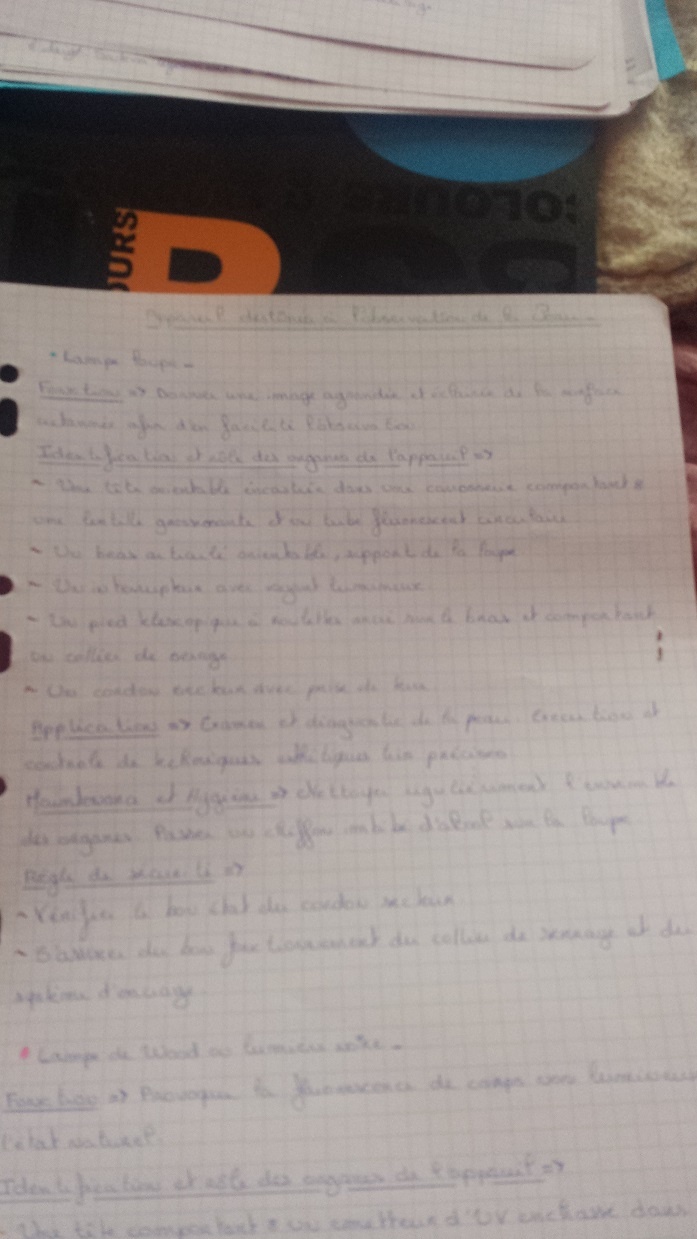 OURS
Appareil destiné à l'observation de la Peau.
• Lampe loupe -
Fonction => Donner une image agrandie et éclairée de la surface
examinée afin d'en facilité l'observation
Identification et rôle des organes de l'appareil =>
~ Une tête orientable incastrée dans une comportant :
une lentille grossissante et un tube fluorescent circulaire
~ Un bras articulé orientable, support de la loupe
~ Un interrupteur avec voyant lumineux
~ Un pied télescopique à roulettes sur le bras et comportant
un collier de serage
~ Un cordon secteur avec prise de terre
Application => Examen et diagnostic de la peau. Execution et
controle de techniques esthétiques très précises
Maintenance et Hygiène => Nettoyer régulièrement l'ensemble
des organes. Passer un chiffon imbibé d'alcool sur la loupe
Règle de sécurité =>
~ Vérifier le bon état du cordon secteur
~ S'assurer du bon fonctionnement du collier de serrage et du
système d'ancrage
• Lampe de Wood ou lumière noire -
Fonction => Provoquer la fluorescence de corps non lumineux
l'état naturel.
Identification et rôle des organes de l'appareil =>
- Une tête comportant : un emetteur d'UV enchassé dans